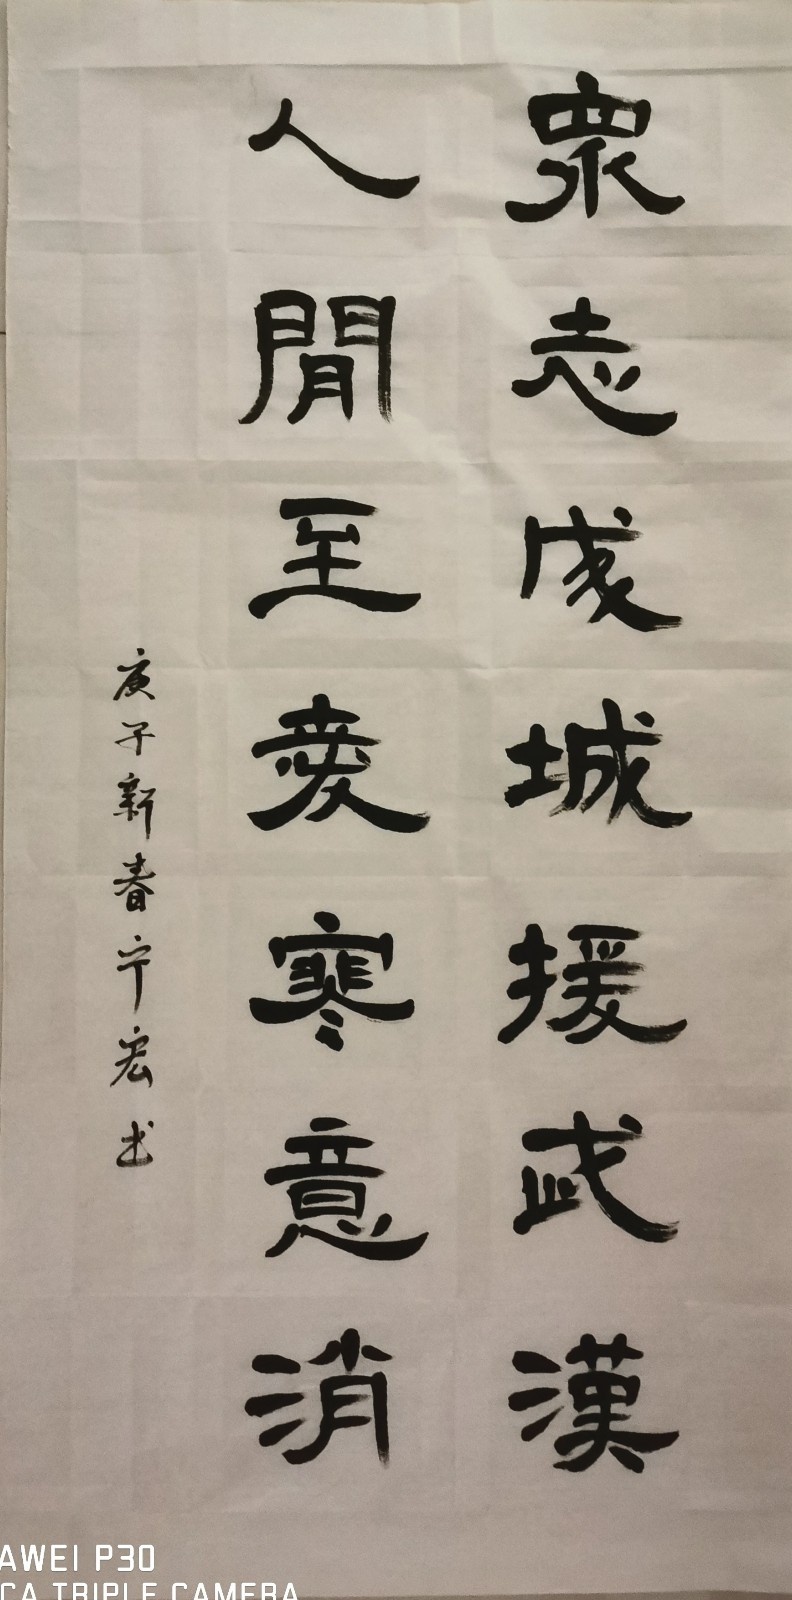 眾志成城援武漢
人間至愛寒意消
庚子新春宁宏书
AWEI P30
CA TRIPLE CAMERA